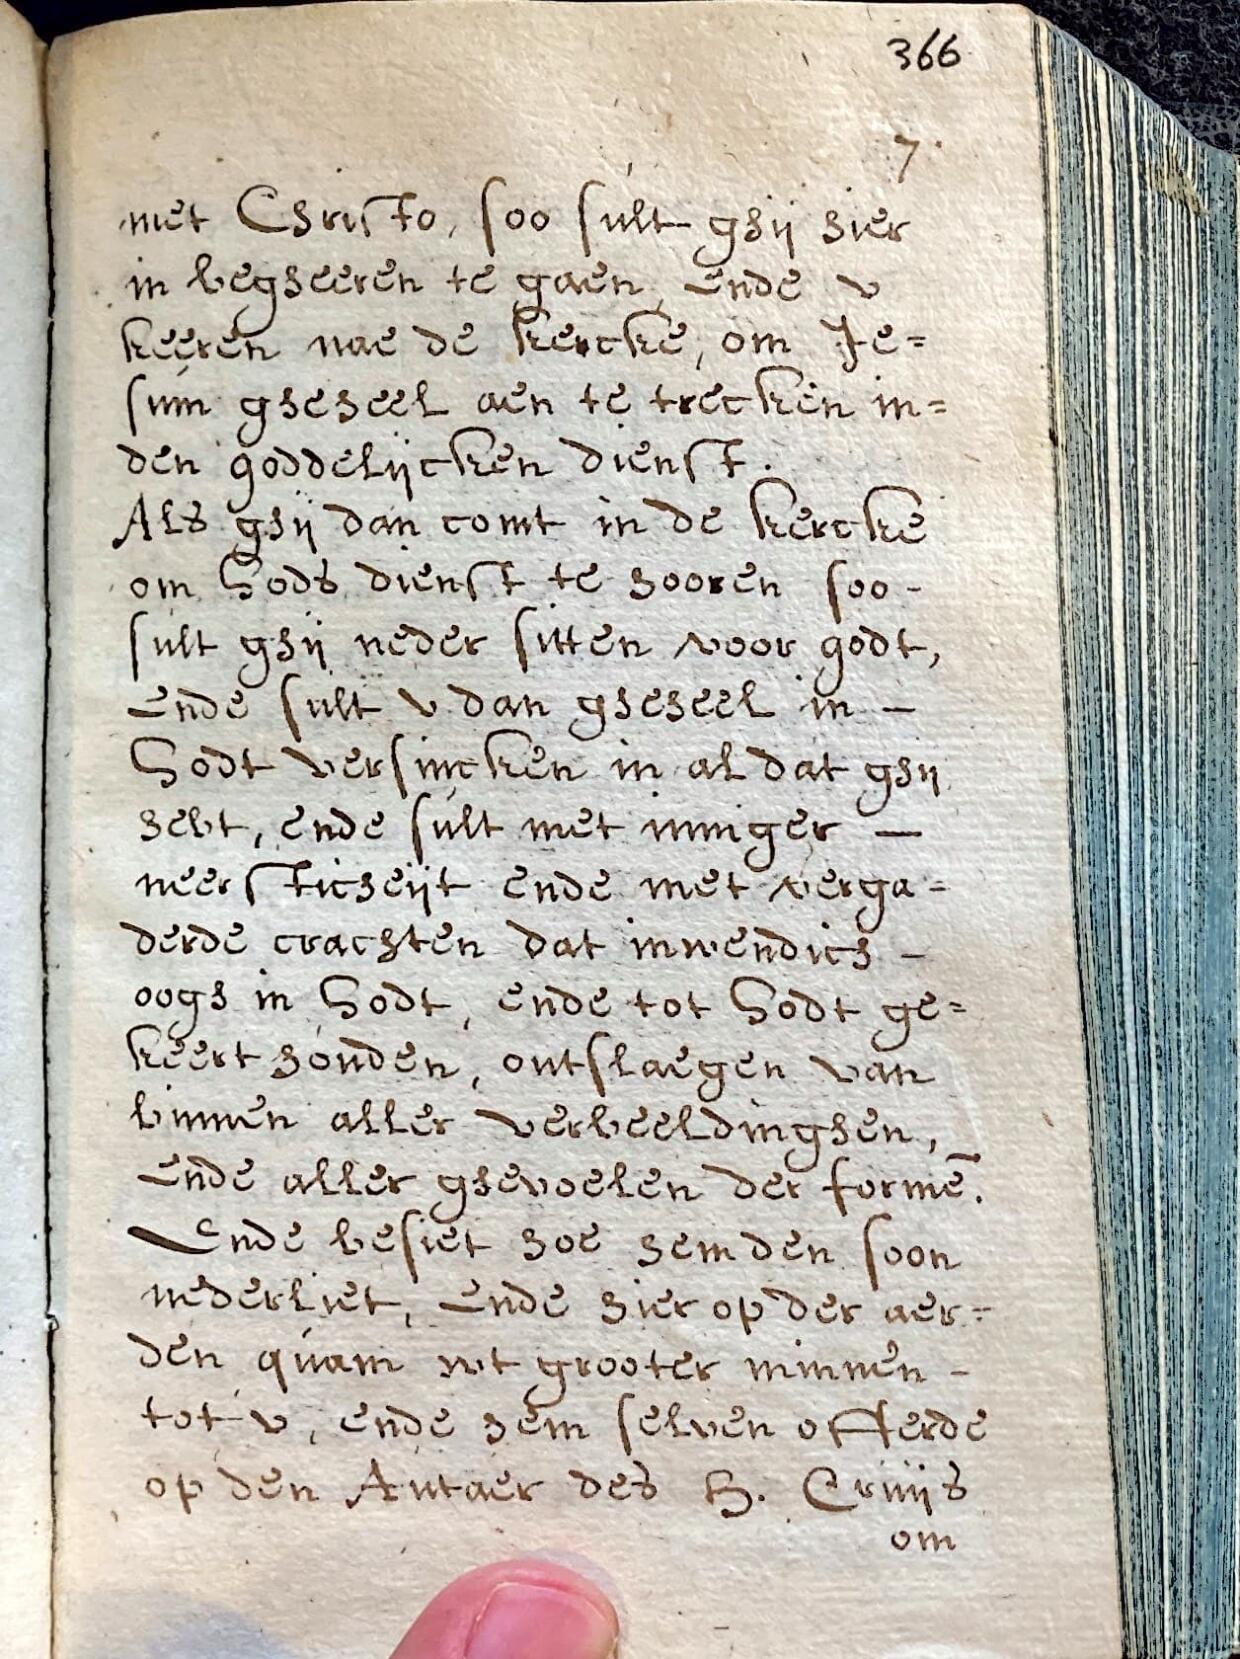 366
7.
met Christo, soo sult ghij hier
in begheeren te gaen, ende v
keeren nae de kercke, om Je=
sum gheheel aen te trecken in=
den goddelijcken dienst.
Als ghij dan comt in de kercke
om Godts dienst te hooren soo -
sult ghij neder sitten voor godt,
Ende sult v dan gheheel in -
Godt versincken in al dat ghij
hebt, ende sult met inniger -
neersticheijt ende met verga=
derde crachten dat inwendich -
oogh in Godt, ende tot Godt ge=
keert houden, ontslaegen van
binnen aller verbeeldinghen,
Ende aller ghevoelen der formē.
Ende besiet hoe hem den soon
nederliet, Ende hier op der aer=
den quam wt grooter minnen -
tot v, ende hem selven offerde
op den Autaer des H. Cruijs
om